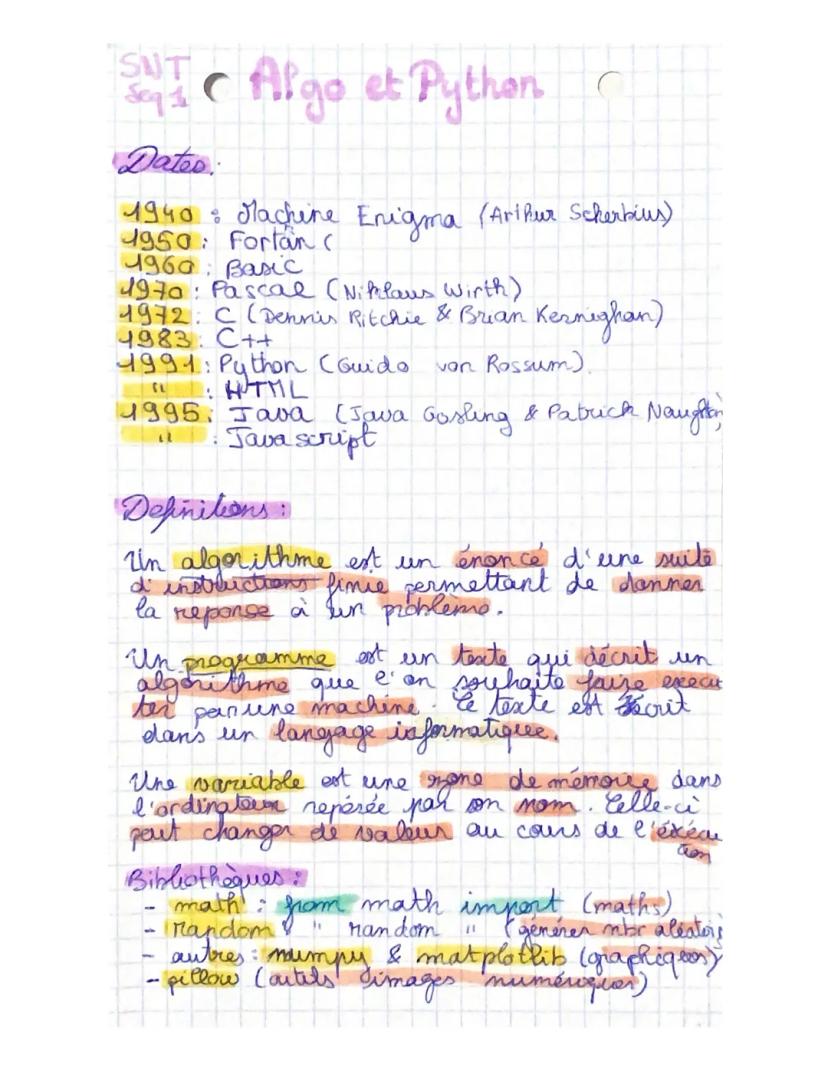 SNT
Seq 1
Algo et Python
Dates:
1940 : Machine Enigma (Arthur Scherbius)
1950 : Fortan (
1960 : Basic
1970 : Pascal (Niklaus Wirth)
1972 : C (Dennis Ritchie & Brian Kernighan)
1983 : C++
1991 : Python (Guido van Rossum).
" : HTML
1995 : Java (Java Gosling & Patrick Naughton
" : Javascript
Definitions :
Un algorithme est un énoncé d'une suite
d'instructions finie permettant de donner
la reponse à un problème.
Un programme est un texte qui décrit un
algorithme que l'on souhaite faire execu
ter par une machine. Ce texte est écrit
dans un langage informatique.
Une variable est une zone de mémoire dans
l'ordinateur repérée par son nom. Celle-ci
peut changer de valeur au cours de l'éxécu
tion
Bibliothèques :
- math : from math import (maths)
- random " random " (générer nbr aléatoir
- autres : numpy & matplotlib (graphiques)
- pillow (outils images numériques)